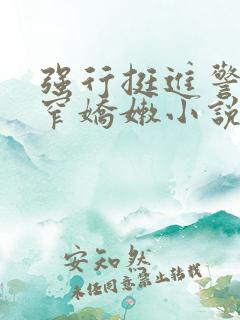 强行挺进警
窄嬌嫩小説
安知然
未经同意禁止转载